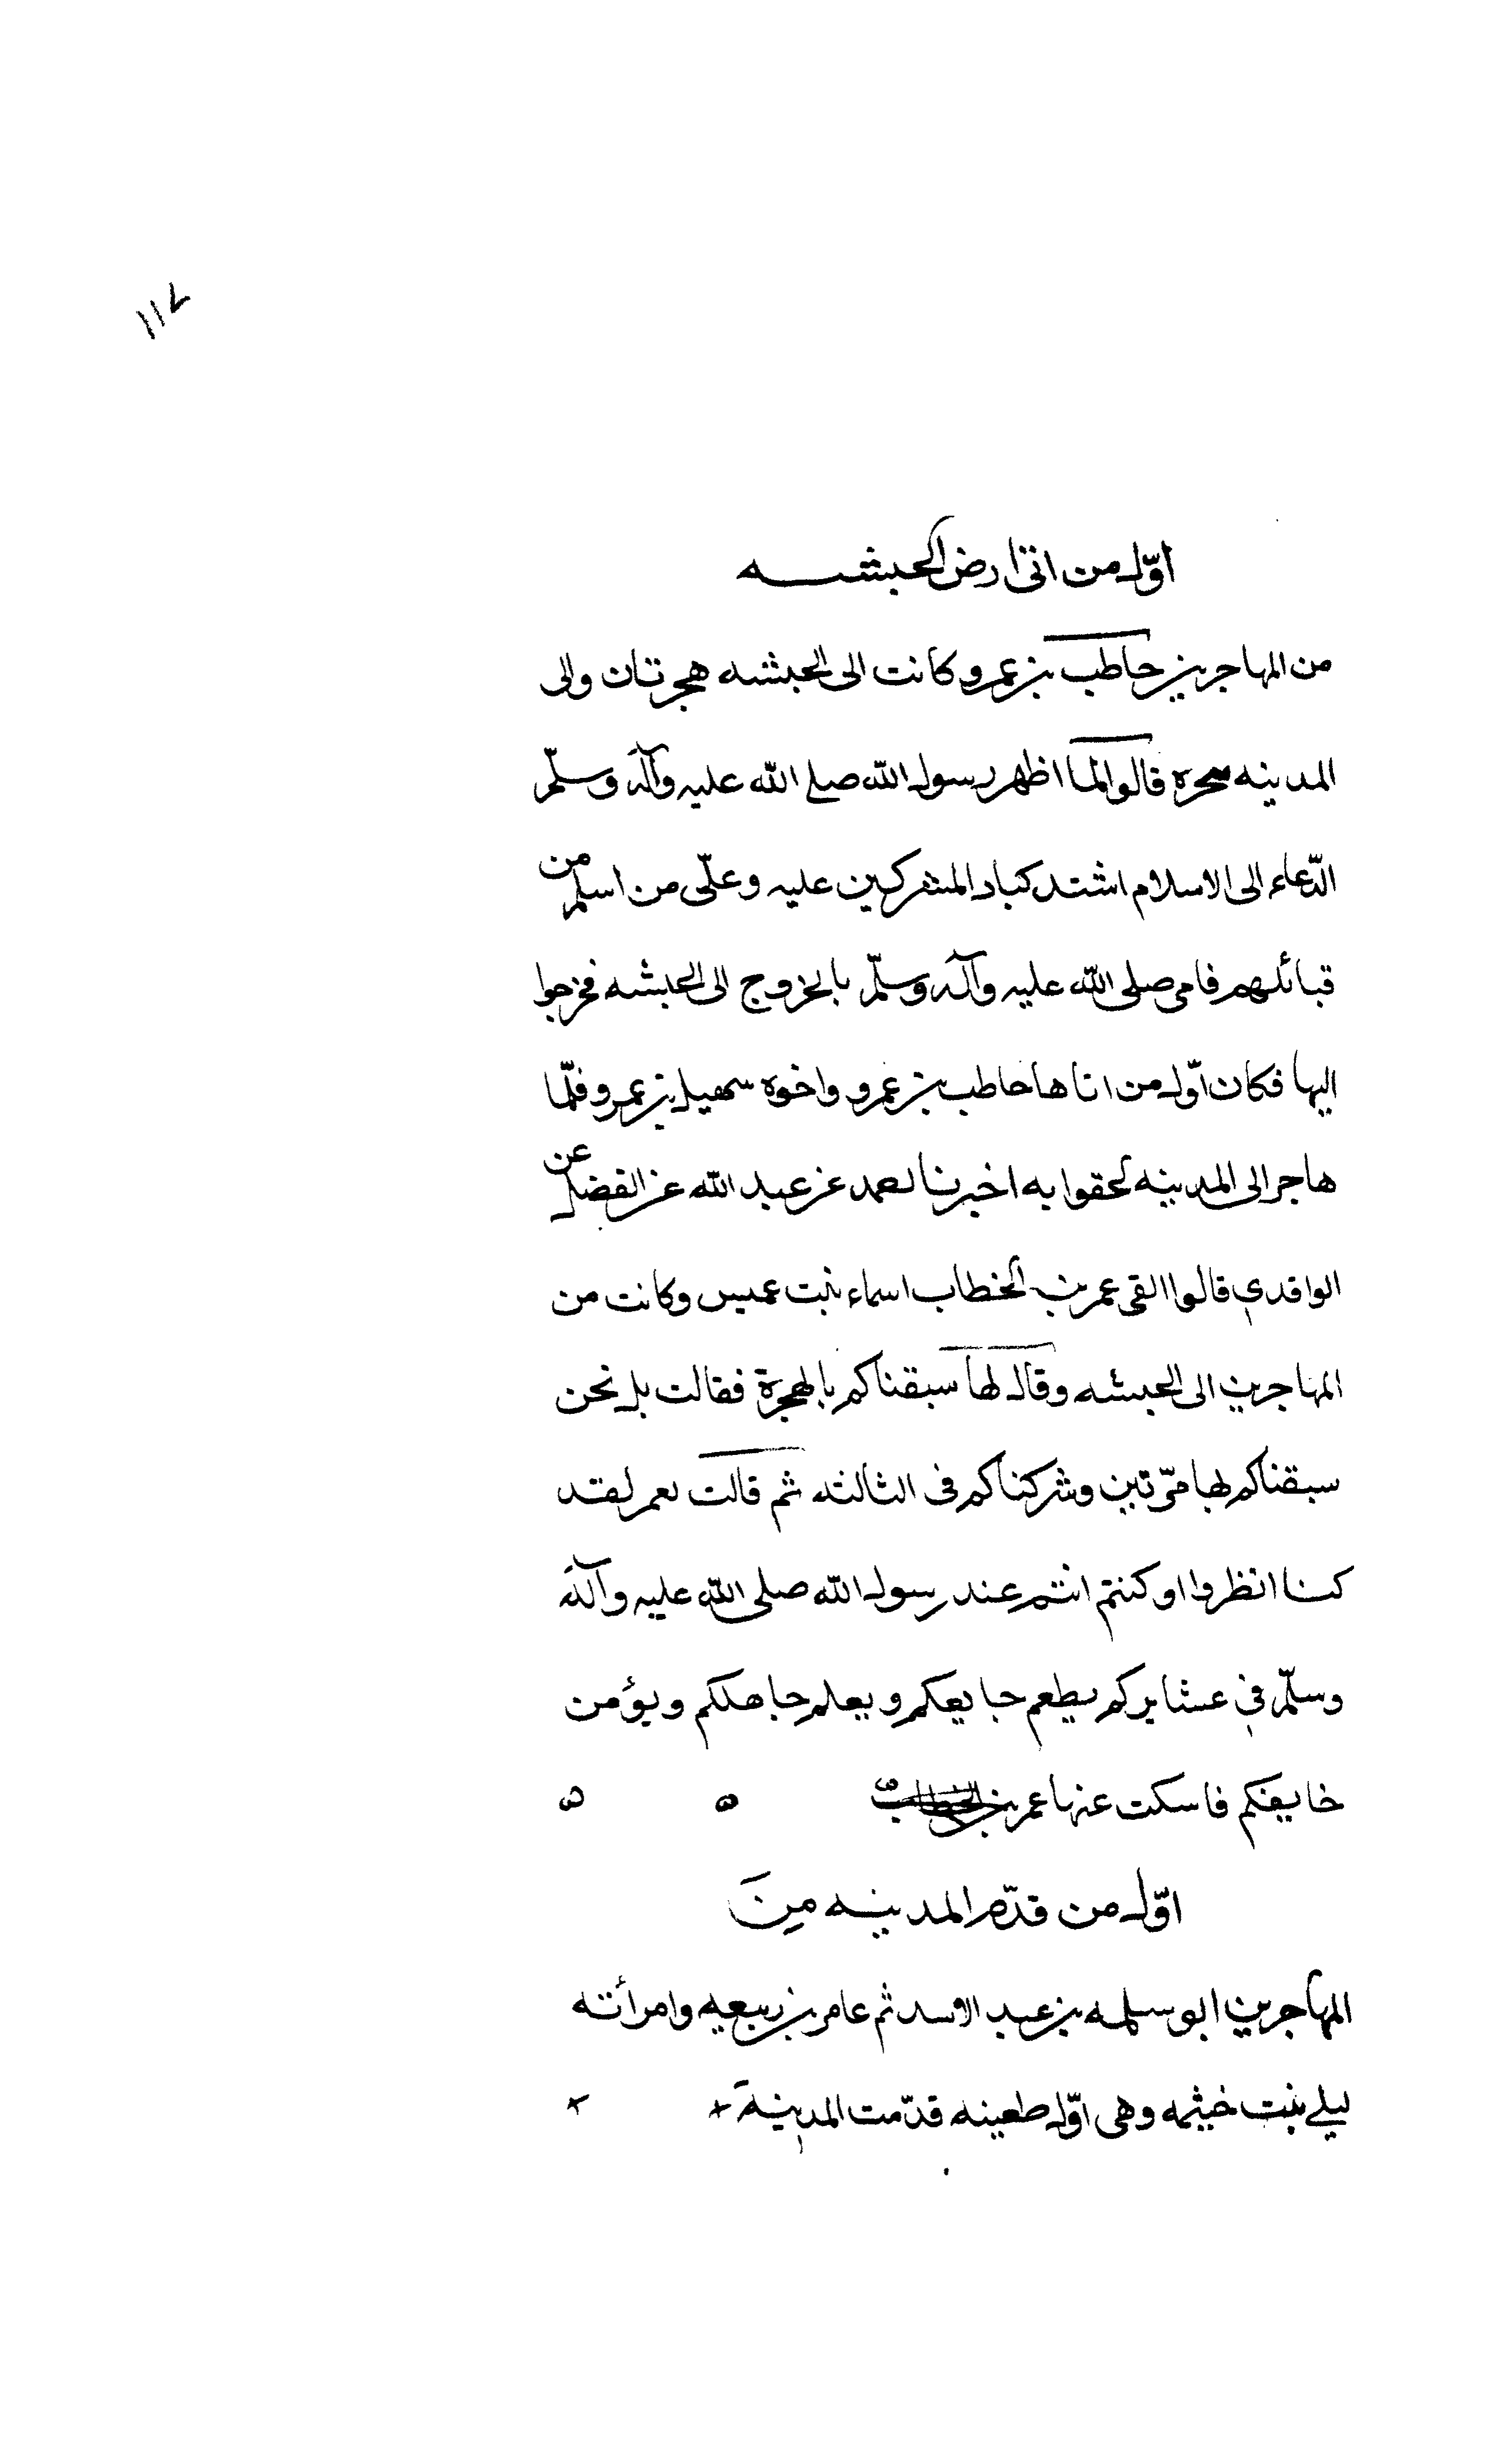 ١١٧
اوّل من اتى ارض الحبشه
من المهاجرين حاطب بن عمرو كانت الى الحبشه هجرتان والى
المدينه هجره قالوا لما اظهر رسول الله صلى الله عليه وآله وسلّم
الدّعاء الى الاسلام اشتد كباد المشركين عليه وعلى من اسلم من
قبائلهم فامر صلى الله عليه وآله وسلّم بالخروج الى الحبشه فخرجوا
اليها فكان اوّل من اتاها حاطب بن عمرو واخوه سهيل بن عمرو فلمّا
هاجر الى المدينه لحقوا به اخبرنا عن عبد الله عن الفضل عن
الواقدي قالوا القى عمر بن الخطاب اسماء بنت عميس وكانت من
المهاجرين الى الحبشه وقال لها سبقناكم بالهجرة فقالت بل نحن
سبقناكم لها مرّتين وشركناكم فى الثالثه ثم قالت لعمر لقد
كنا انظروا او كنتم انتم عند رسول الله صلى الله عليه وآله
وسلّم في عشايركم يطعم جايعكم ويعلم جاهلكم ويؤمن
خايفكم فاسكت عنها عمر بن الخطاب ه ه
اوّل من قدّم المدينه مِنَ
المهاجرين ابو سلمه بن عبد الاسد ثم عامر بن ربيعه وامرأته
ليلى بنت خيثمه وهى اوّل طعينه قدّمت المدينة